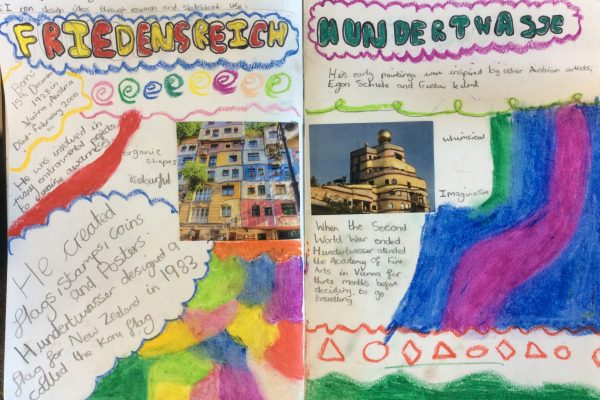 I can design ideas through research and sketchbook use.
FRIEDENSREICH
Born:
15th December
1928 in
Vienna, Austria
Died: February 2000
He was involved in
many environmental projects
to raise awareness
organic
shapes
colourful
He created
flags, stamps, coins
and Posters.
Hundertwasser designed a
flag for New Zealand in 1983
called the Koru flag
HUNDERTWASSE
His early paintings were inspired by other Austrian artists;
Egon Schiele and Gustav klimt
whimsical
Imaginative
When the Second
World War ended
Hundertwasser attended
the Academy of Fine
Arts in Vienna for
three months before
deciding to go
travelling